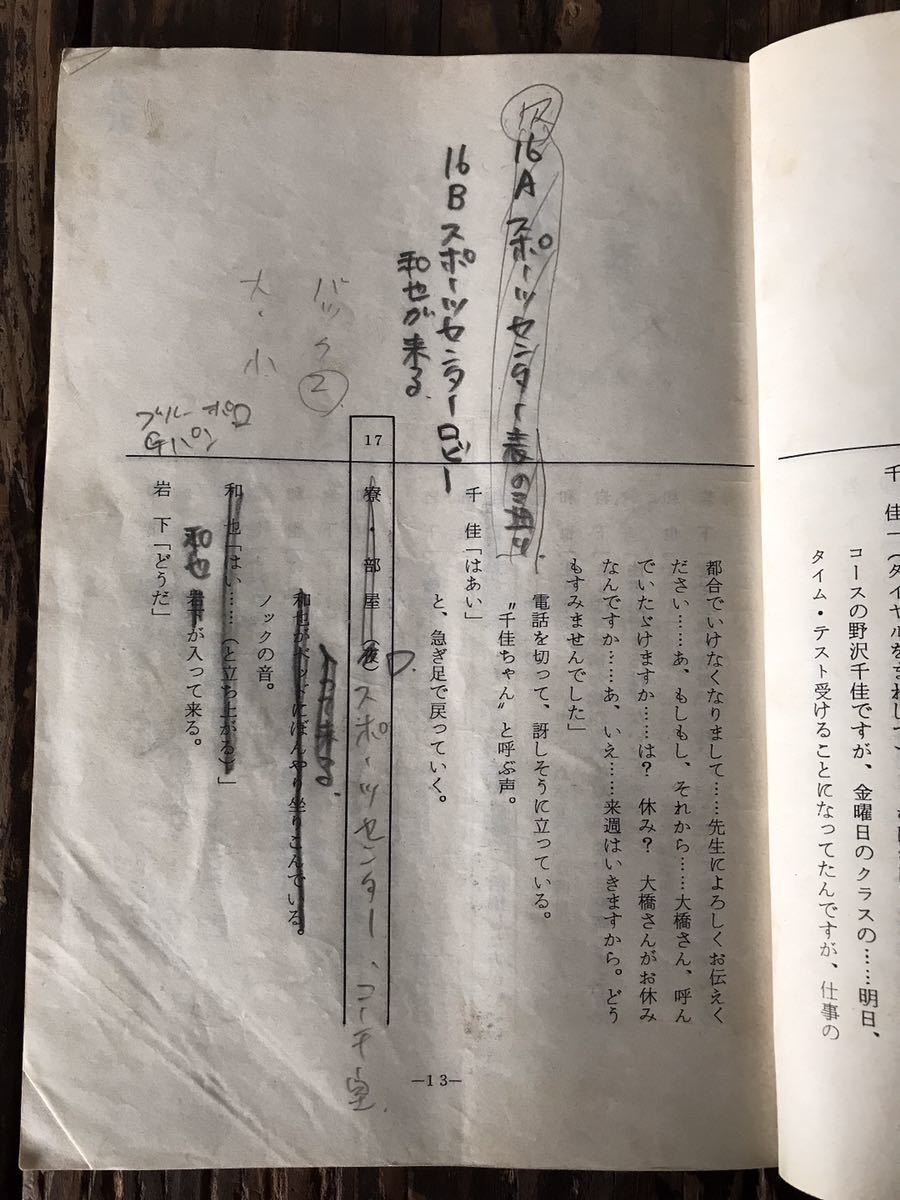 千佳「(ダイヤルをまわして)
コースの野沢千佳ですが、金曜日のクラスの……明日、
タイム・テスト受けることになってたんですが、仕事の
都合でいけなくなりまして……先生によろしくお伝えく
ださい……あ、もしもし、それから……大橋さん、呼ん
でいたゞけますか……は？　休み？　大橋さんがお休み
なんですか……あ、いえ……来週はいきますから。どう
もすみませんでした」
電話を切って、訝しそうに立っている。
〝千佳ちゃん〟と呼ぶ声。
千佳「はあい」
と、急ぎ足で戻っていく。
16A スポーツセンター表の通り
16B スポーツセンターロビー
和也が来る
17 寮・部屋（夜）D. スポーツセンター、コーチ室
バック②
大・小
和也がベッドにぼんやり坐りこんでいる。
ノックの音。
和也「はい……（と立ち上がる）」
和也
岩下が入って来る。
岩下「どうだ」
ブルーポロ
Gパン
—13—